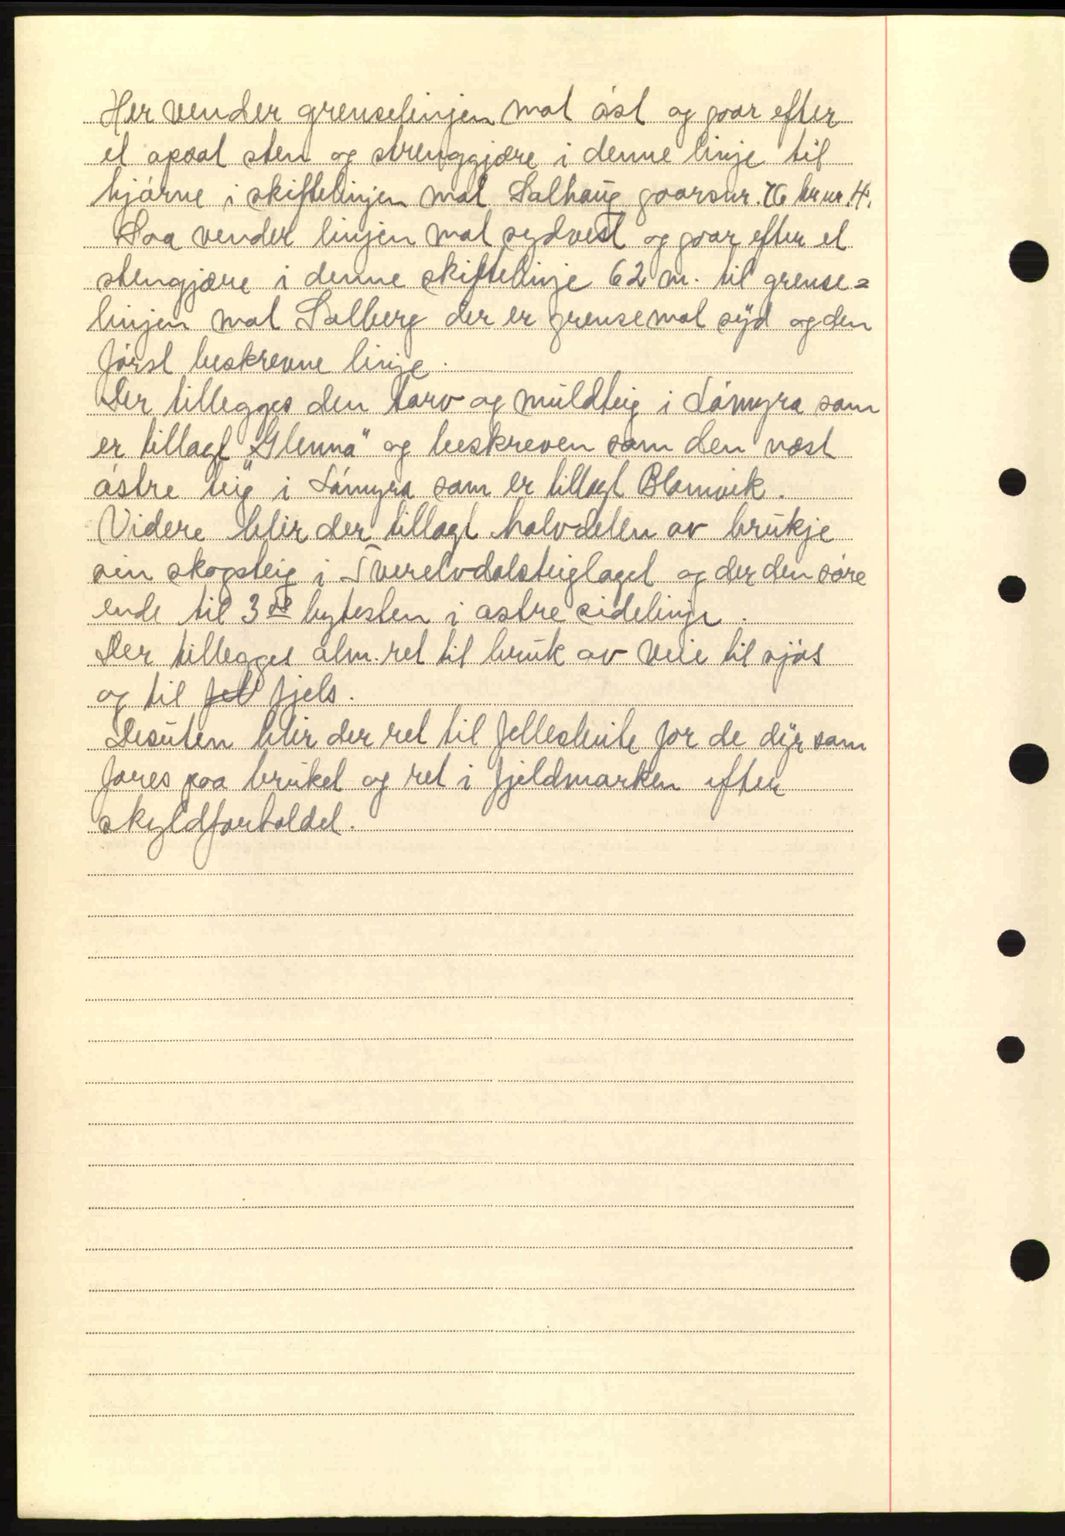 Her vender grenselinjen mot øst og gaar efter
et opsat sten og strenggjære i denne linje til
hjørne i skiftelinjen mot Salhaug gaarsnr. 76 br.nr. 4.
Saa vender linjen mot sydvest og gaar efter et
stengjære i denne skiftelinje 62 m. til grense=
linjen mot Salberg der er grense mot syd og den
først beskrevne linje.
Der tillegges den torv og muldteig i Lómyra som
er tillagt "Glenna" og beskreven som den næst
østre teig i Lómyra som er tillagt Blomvik.
Videre blir der tillagt halvdelen av brukje
sin skogsteig i Tverelvdalsteiglaget og der den søre
ende til 3de bytesten i østre sidelinje.
Der tillegges alm. ret til bruk av veie til sjøs
og til fjels.
Desuten blir der ret til fellesbeite for de dyr som
føres paa bruket og ret i fjeldmarken efter
skyldforholdet.